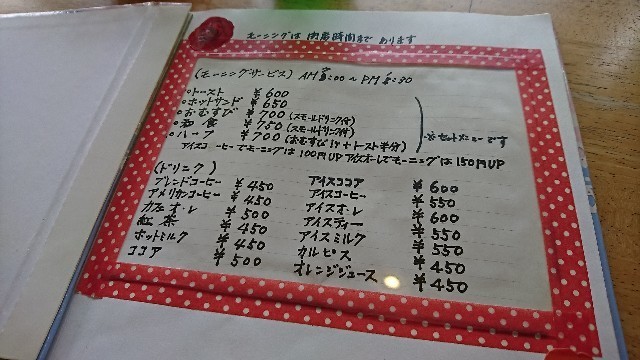 モーニングは 閉店時間まで あります
(モーニングサービス) AM 8:00 ~ PM :30
○トースト ¥600
○ホットサンド ¥650
○おむすび ¥700 (スモールドリンク付)
○和食 ¥750 (スモールドリンク付)
○ハーフ ¥700 (おむすび1ケ+トースト半分)
※セットメニューです
アイスコーヒーでモーニングは100円UP アイスオーレでモーニングは150円UP
(ドリンク)
ブレンドコーヒー ¥450
アメリカンコーヒー ¥450
カフェオ・レ ¥500
紅茶 ¥450
ホットミルク ¥450
ココア ¥500
アイスココア ¥600
アイスコーヒー ¥550
アイスオ・レ ¥600
アイスティー ¥550
アイスミルク ¥550
カルピス ¥450
オレンジジュース ¥450